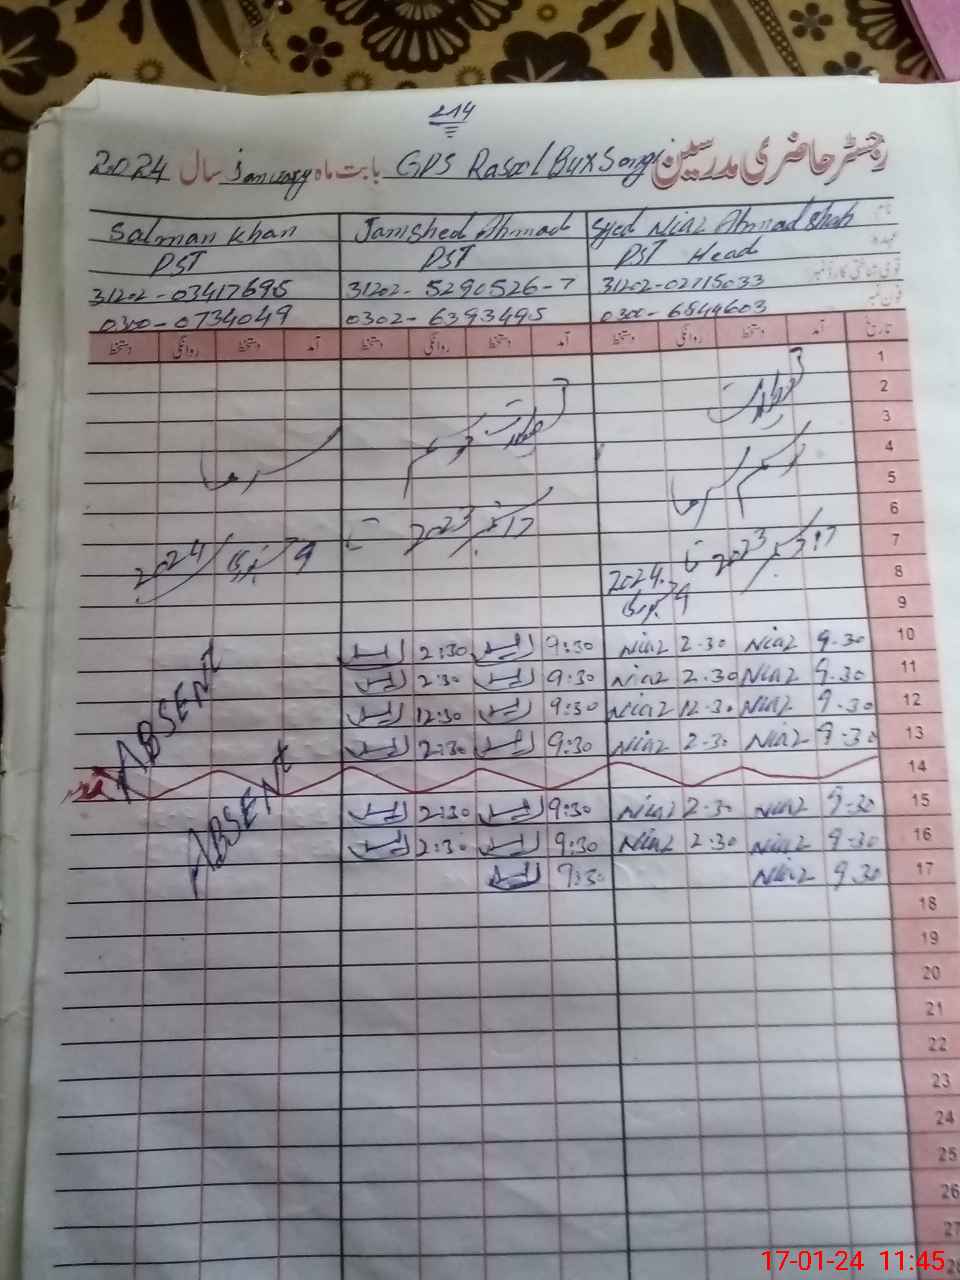 214
رجسٹر حاضری مدرسین GPS Rasool Bux Songi بابت ماہ January سال 2024
نام Syed Niaz Ahmad Shah Jamshed Ahmad Salman Khan
عہدہ PST Head PST PST
قومی شناختی کارڈ نمبر 31202-02715033 31202-5290526-7 31202-03417695
فون نمبر 0300-6844603 0302-6393495 0300-0734049
تاریخ آمد دستخط روانگی دستخط آمد دستخط روانگی دستخط آمد دستخط روانگی دستخط
1
2
3 تعطیلات تعطیلات
4 موسم موسم سرما
5 سرما
6
7 17 دسمبر 2023 تا 17 دسمبر 2023 تا 9 جنوری 2024
8 2024
9 9 جنوری
10 9.30 Niaz 2.30 Niaz 9:30 2:30
11 9.30 Niaz 2.30 Niaz 9:30 2:30 ABSENT
12 9.30 Niaz 12.30 Niaz 9:30 12:30
13 9.30 Niaz 2.30 Niaz 9:30 2:30
14
15 9.30 Niaz 2.30 Niaz 9:30 2:30 ABSENT
16 9.30 Niaz 2.30 Niaz 9:30 2:30
17 9.30 Niaz 9:30
18
19
20
21
22
23
24
25
26
27
28
17-01-24 11:45